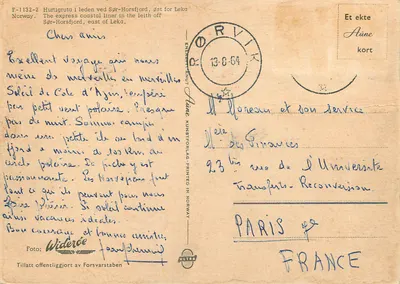 F-1122-8 Hurtigruta i leden ved Sør-Horsfjord, øst for Leka
Norway. The express coastal liner in the leith off
Sør-Horsfjord, east of Leka.
Chers amis
Excellent voyage qui nous
mène de merveilles en merveilles
Soleil de Côte d'Azur, tempéré
par petit vent polaire. Presque
pas de nuit. Sommes campés
dans une petite île au bord d'un
fjord à moins de 100 km du
cercle polaire. La pêche y est
passionnante. Les Norvégiens font
tout ce qu'ils peuvent pour nous
faire plaisir. Si soleil continue
ainsi vacances idéales.
Bon courage et bonnes amitiés
Foto: Widerøe
Tillatt offentliggjort av Forsvarsstaben
Aune KUNSTFORLAG - PRINTED IN NORWAY
MITTET
RØRVIK
13-8-64
Et ekte
Aune
kort
M. Moreau et son service
Mère des Finances
23 ter rue de l'Université
Transferts-Reconversion
PARIS 7e
FRANCE